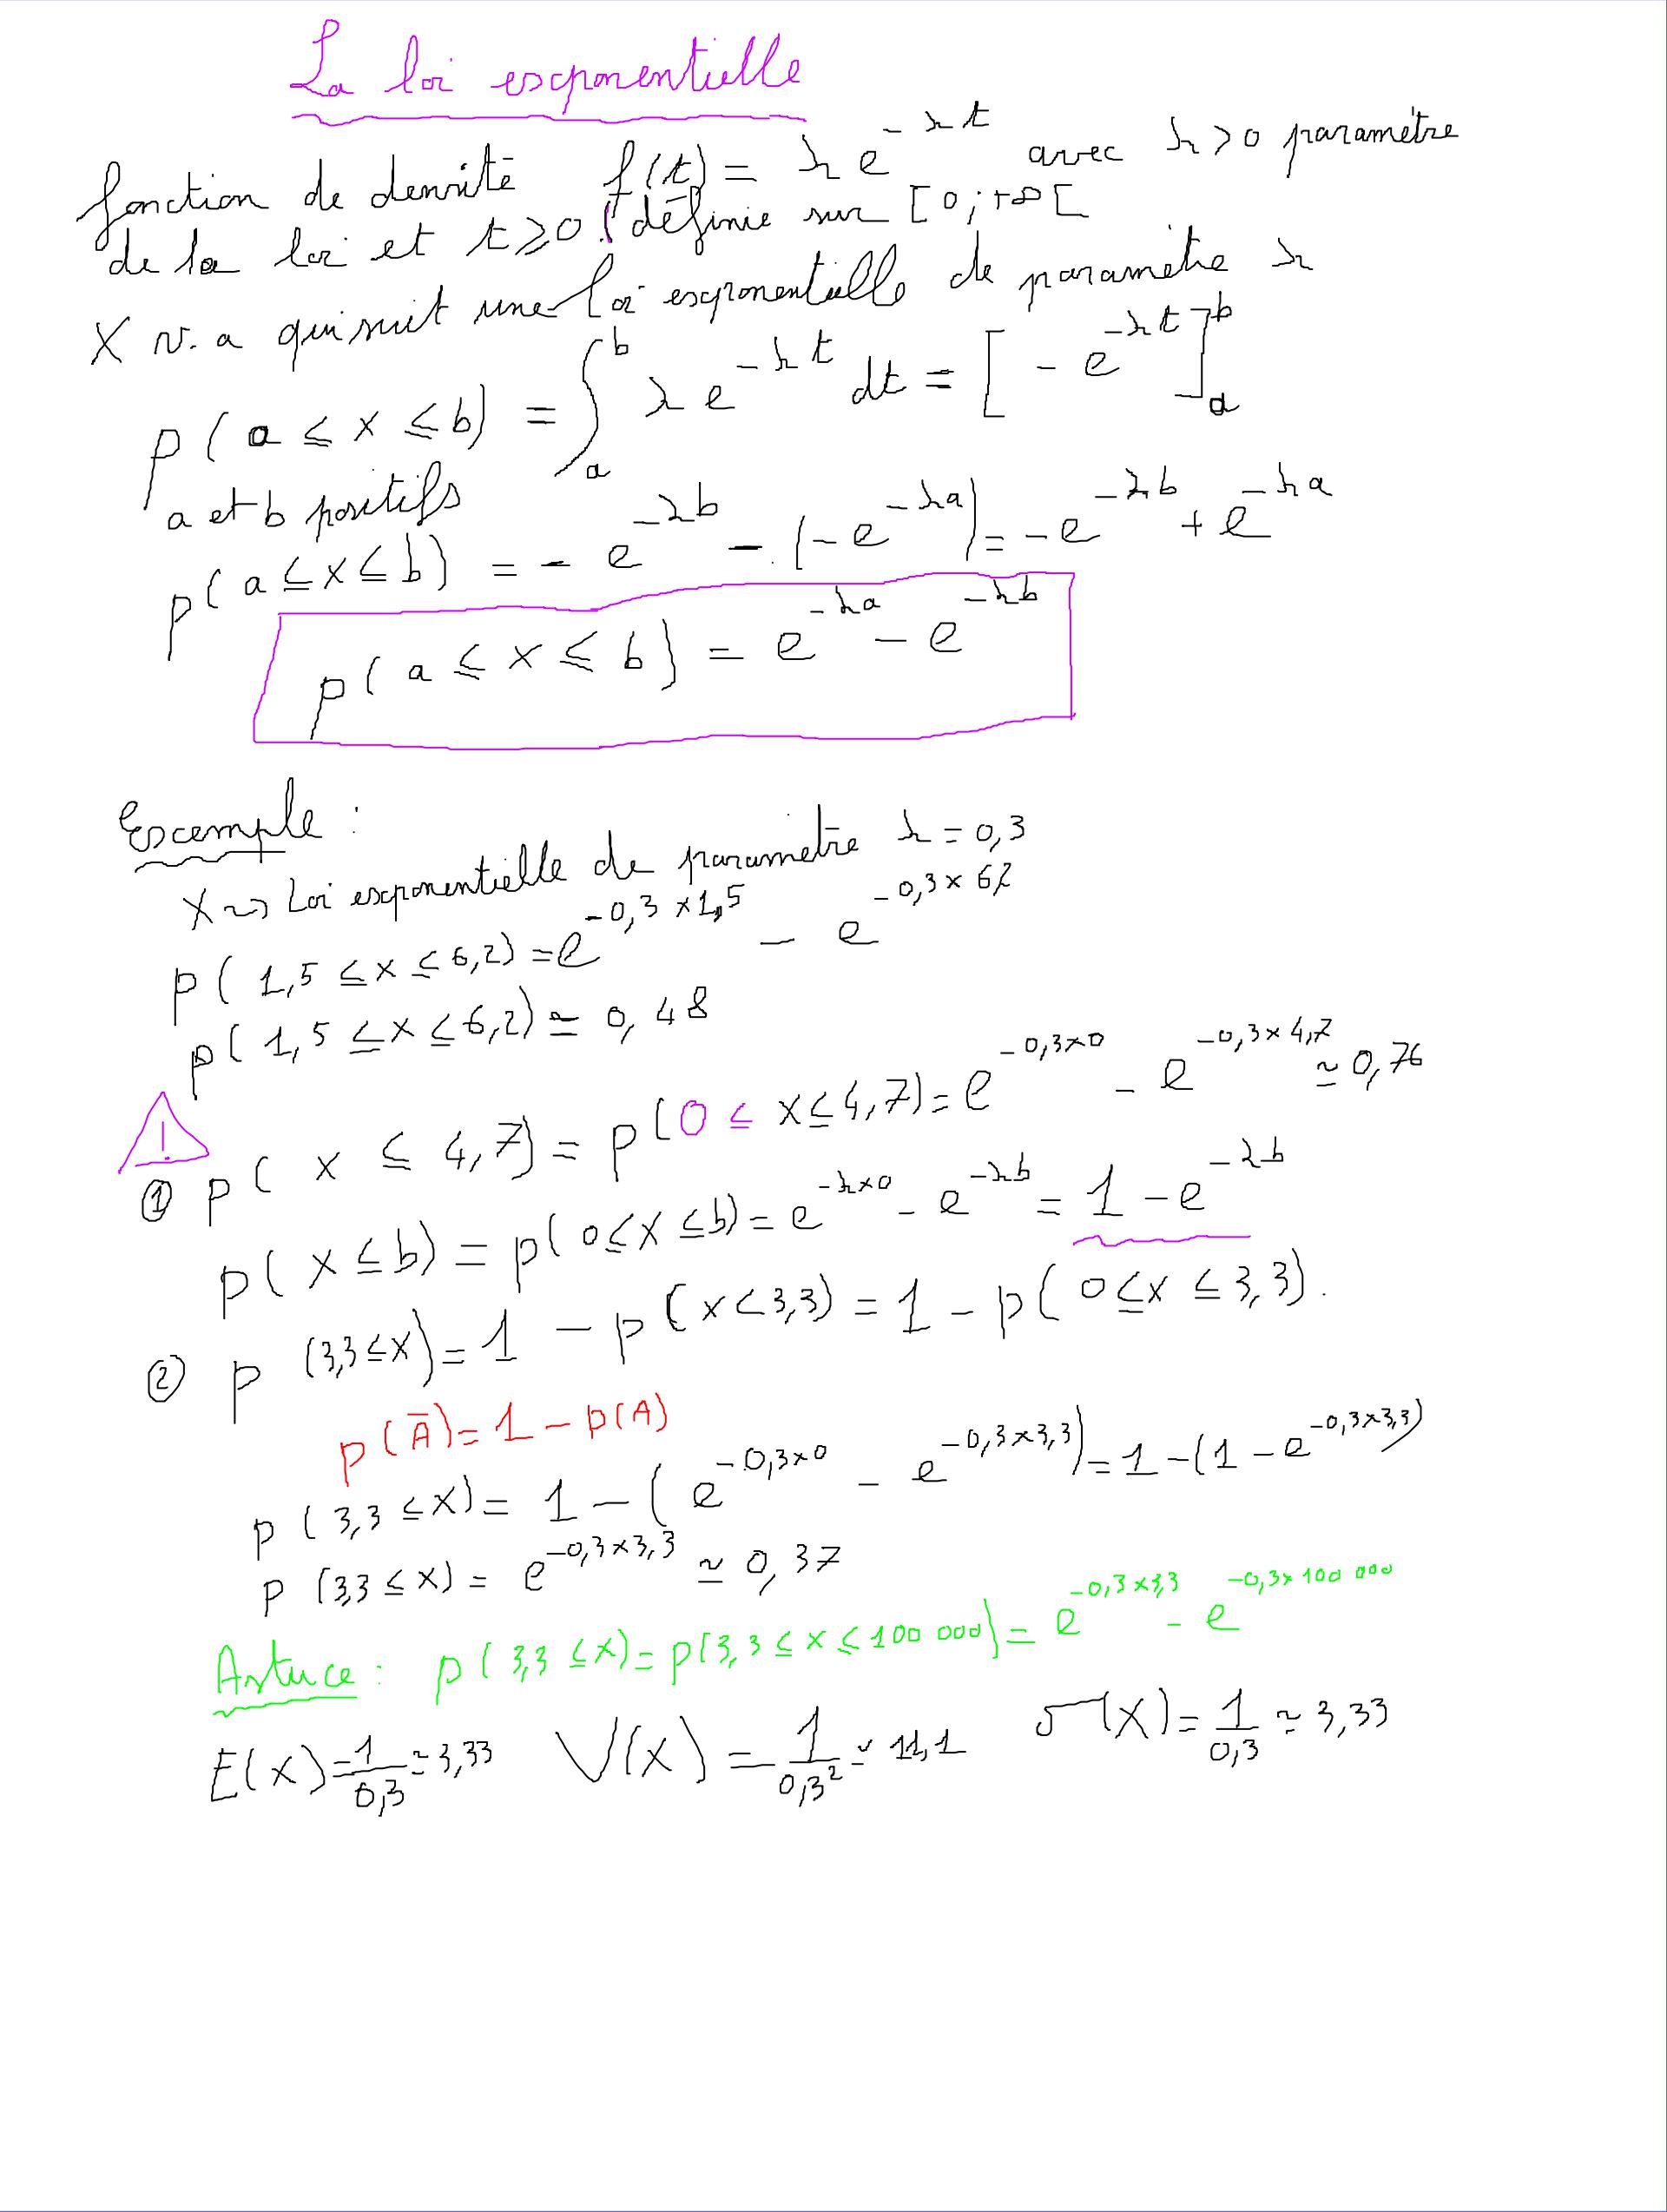 La loi exponentielle
fonction de densité f(t) = λe^{-λt} avec λ > 0 paramètre
de la loi et t ≥ 0 ! définie sur [0 ; +∞[
X v.a qui suit une loi exponentielle de paramètre λ
p(a ≤ X ≤ b) = ∫_a^b λe^{-λt} dt = [-e^{-λt}]_a^b
a et b positifs
p(a ≤ X ≤ b) = -e^{-λb} - (-e^{-λa}) = -e^{-λb} + e^{-λa}
p(a ≤ X ≤ b) = e^{-λa} - e^{-λb}
Exemple :
X ~> Loi exponentielle de paramètre λ = 0,3
p(1,5 ≤ X ≤ 6,2) = e^{-0,3×1,5} - e^{-0,3×6,2}
p(1,5 ≤ X ≤ 6,2) ≃ 0,48
!
① p(X ≤ 4,7) = p(0 ≤ X ≤ 4,7) = e^{-0,3×0} - e^{-0,3×4,7} ≃ 0,76
p(X ≤ b) = p(0 ≤ X ≤ b) = e^{-λ×0} - e^{-λb} = 1 - e^{-λb}
② p(3,3 ≤ X) = 1 - p(X < 3,3) = 1 - p(0 ≤ X ≤ 3,3).
p(Ā) = 1 - p(A)
p(3,3 ≤ X) = 1 - (e^{-0,3×0} - e^{-0,3×3,3}) = 1 - (1 - e^{-0,3×3,3})
p(3,3 ≤ X) = e^{-0,3×3,3} ≃ 0,37
Astuce : p(3,3 ≤ X) = p(3,3 ≤ X ≤ 100 000) = e^{-0,3×3,3} - e^{-0,3×100 000}
E(X) = 1/0,3 ≃ 3,33 V(X) = 1/0,3² ≃ 11,1 σ(X) = 1/0,3 ≃ 3,33